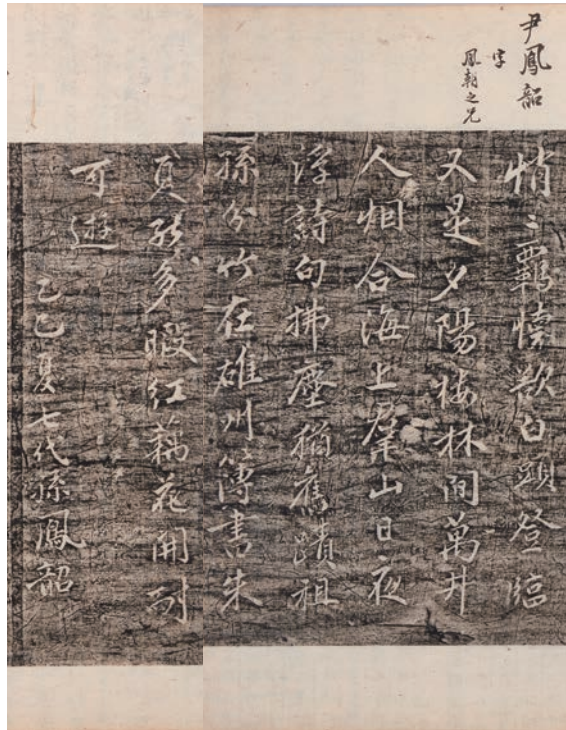 尹鳳韶
字
鳳朝之兄
悄〻羇懷欲白頭登臨
又是夕陽樓林間萬井
人烟合海上羣山日夜
浮詩句拂塵猶舊蹟祖
孫分竹在雄州簿書朱
夏多暇紅藕花開
可遊
乙巳夏七代孫鳳韶